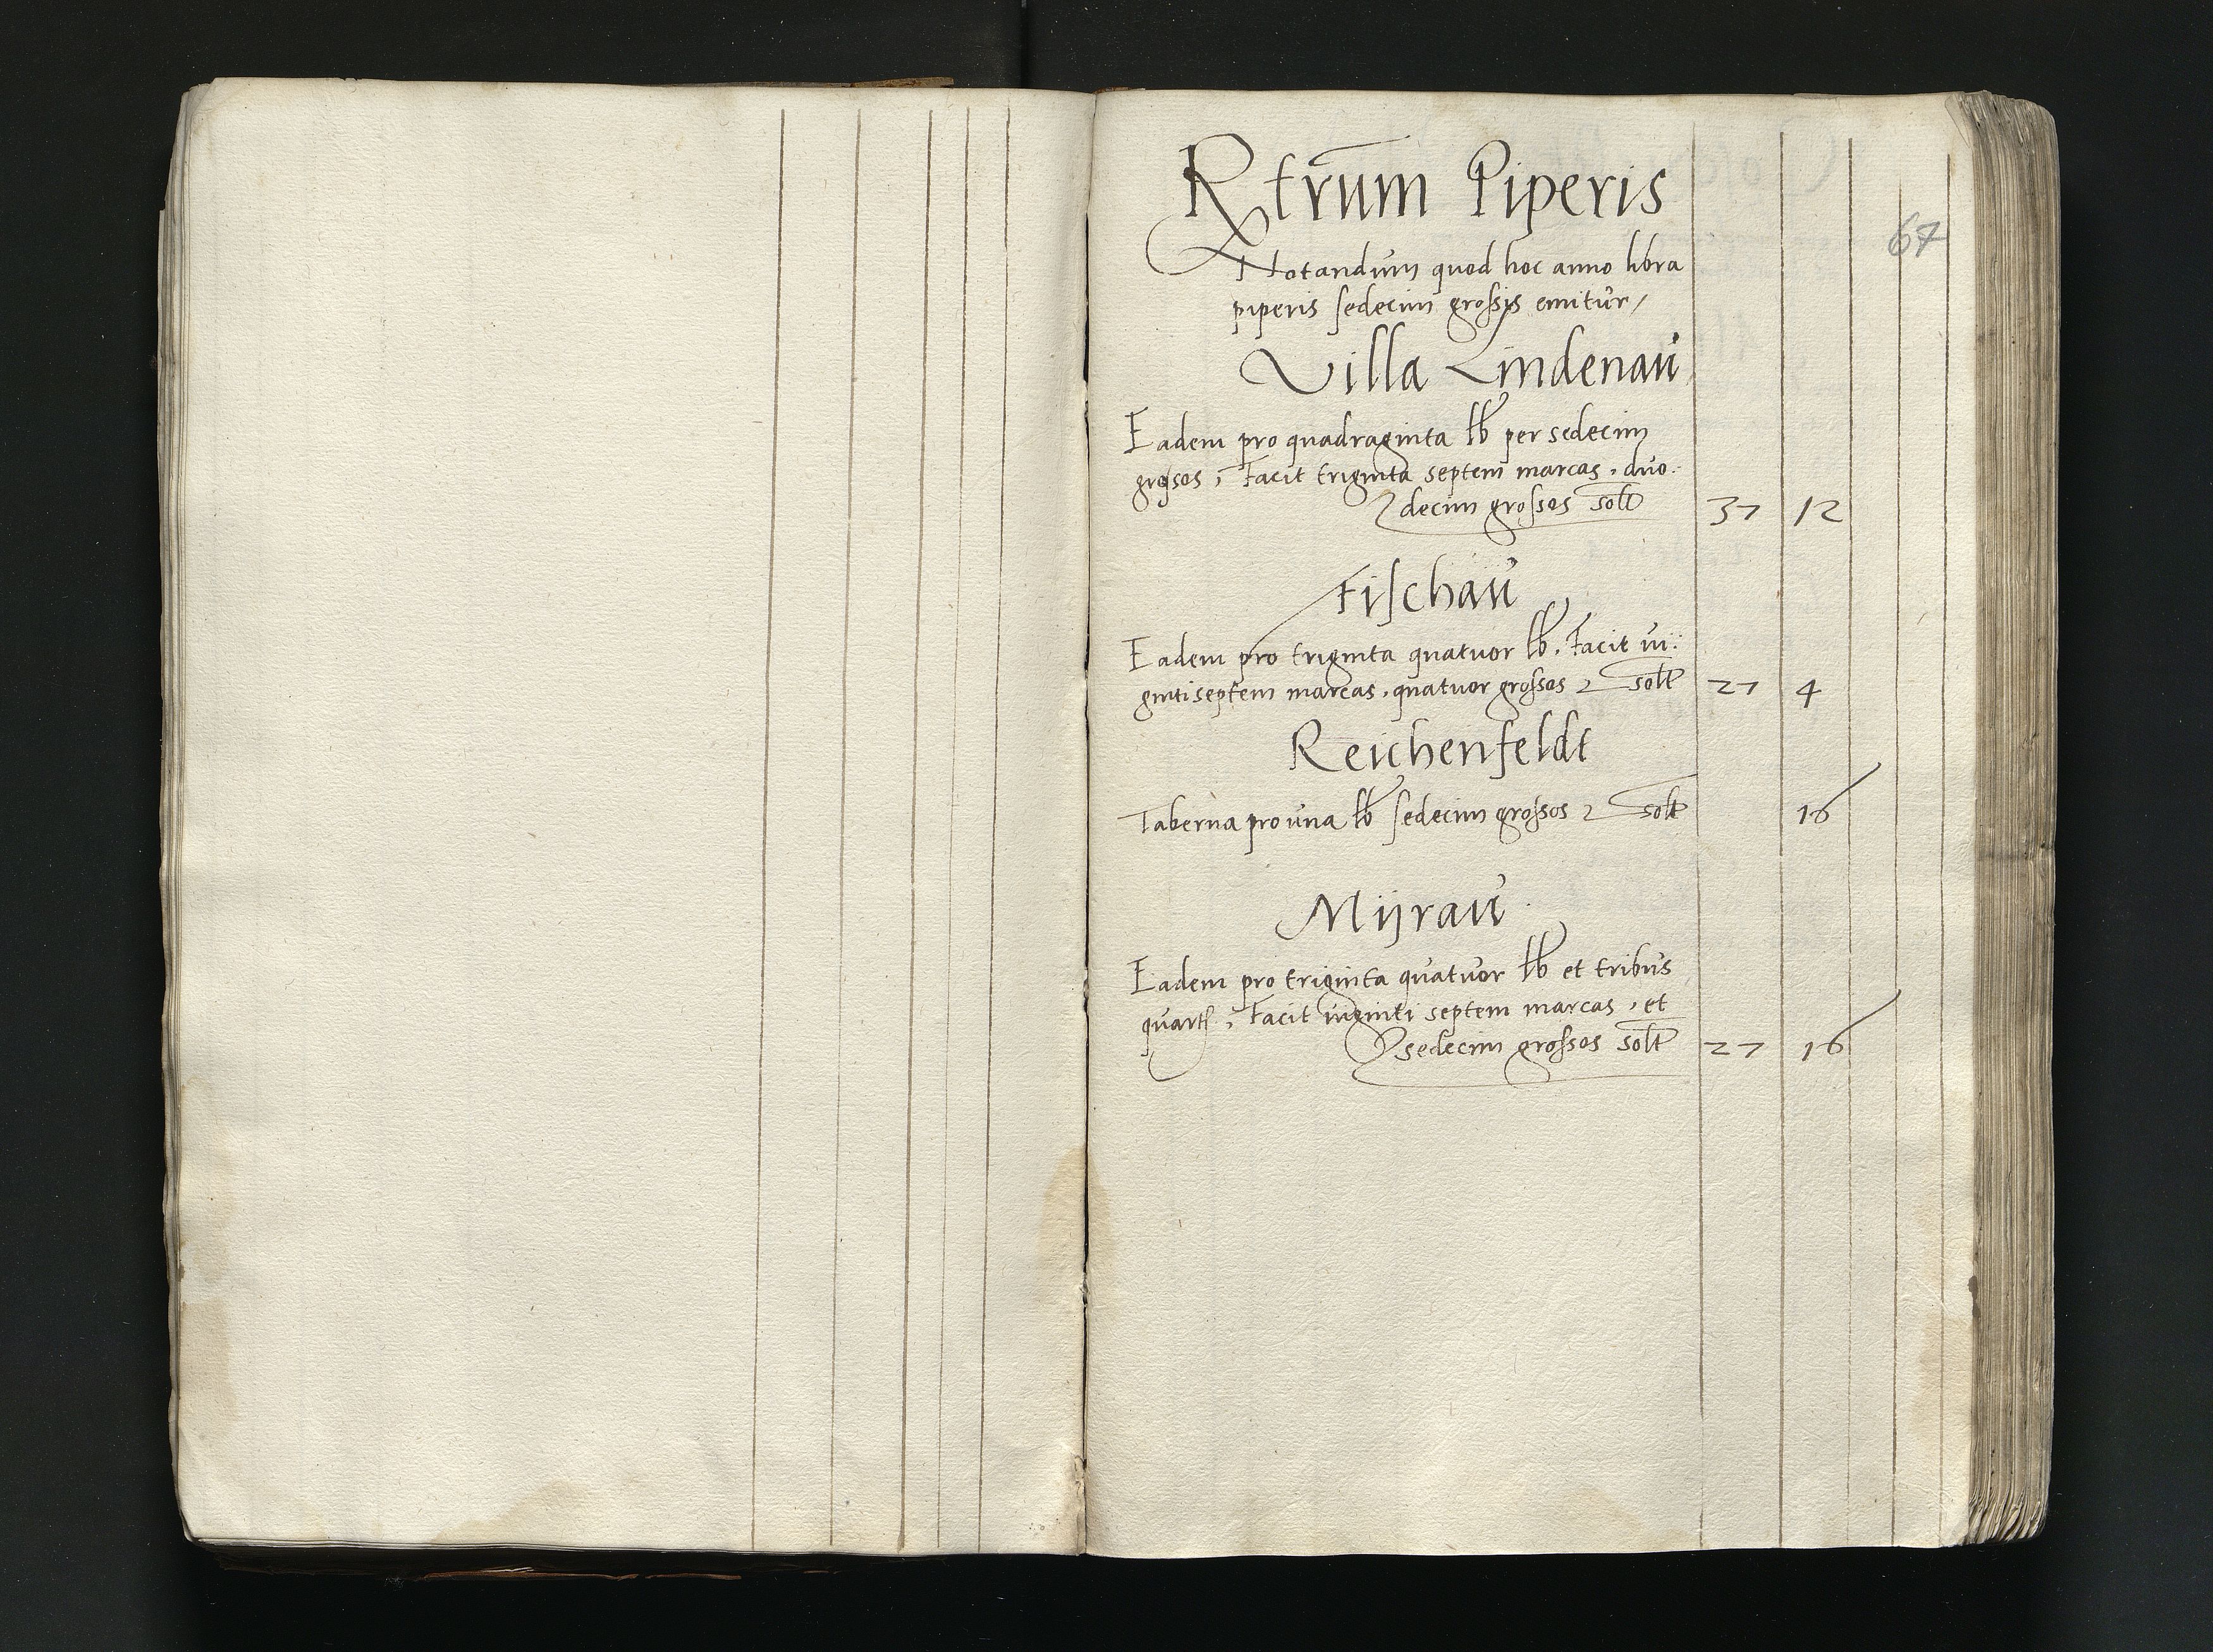 Rtrum Piperis
67
Notandum quod hoc anno libra
piperis sedecim grossis emitur,
Villa Lindenau
Eadem pro quadraginta lb per sedecim
grossos, Facit triginta septem marcas, duo-
decim grossos solt 37 12
Fischau
Eadem pro triginta quatuor lb. Facit vi:
gintiseptem marcas, quatuor grossos solt 27 4
Reichenfeldt
Taberna pro una lb sedecim grossos solt 16
Mijrau
Eadem pro triginta quatuor lb et tribus
quart, Facit viginti septem marcas, et
sedecim grossos solt 27 16